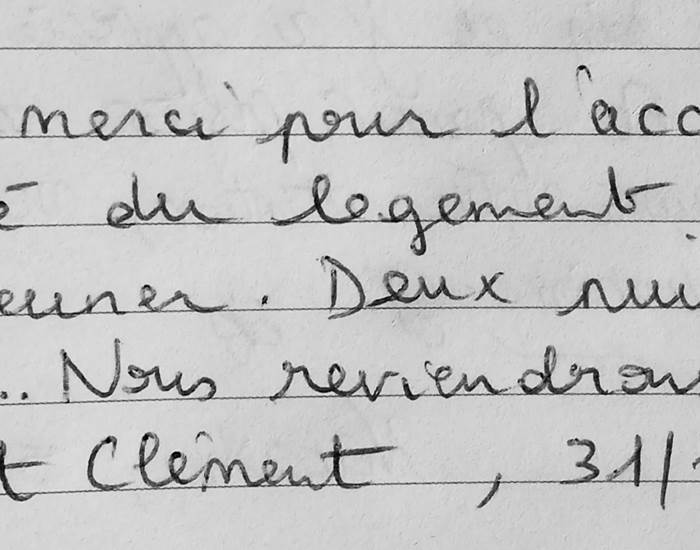 merci pour l'acc
é du logement
euner. Deux nui
.. Nous reviendrons
t Clément, 31/